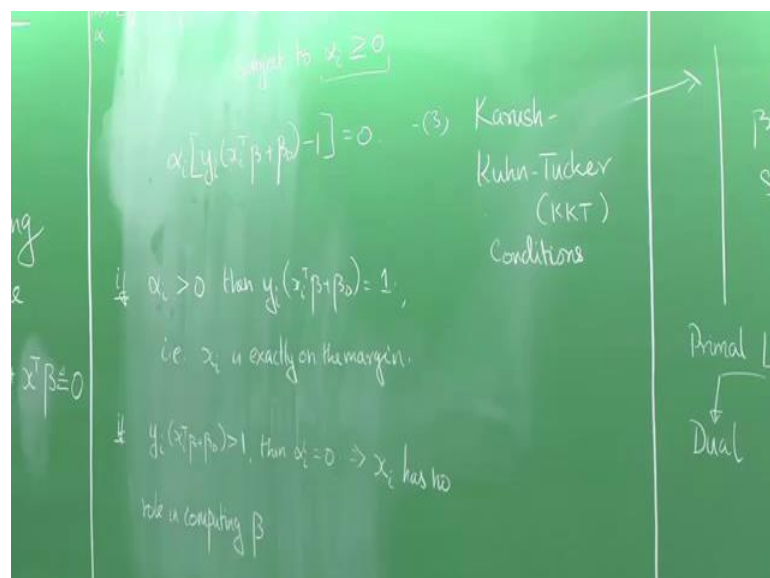 α
subject to αᵢ ≥ 0
αᵢ[yᵢ(xᵢᵀβ+β₀)-1]=0. -(3)
Karush-
Kuhn-Tucker
(KKT)
Conditions
if αᵢ > 0 then yᵢ(xᵢᵀβ+β₀)=1,
i.e. xᵢ is exactly on the margin.
if yᵢ(xᵢᵀβ+β₀)>1, then αᵢ=0 ⇒ xᵢ has no
role in computing β
ng
e
xᵀβ
0
β
S
Primal L
Dual